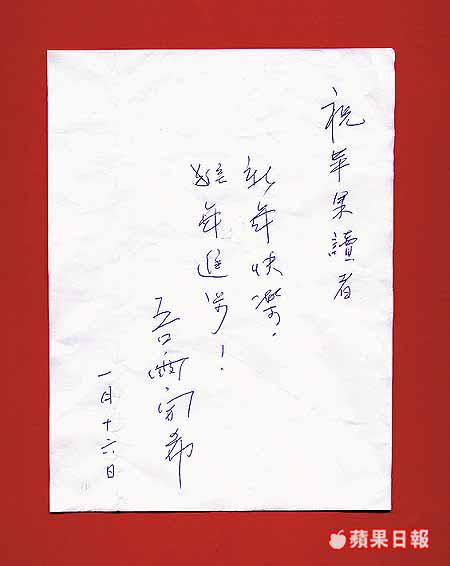 祝苹果讀者
新年快樂，
猴年進步！
吾爾開希
一月十六日
蘋果日報